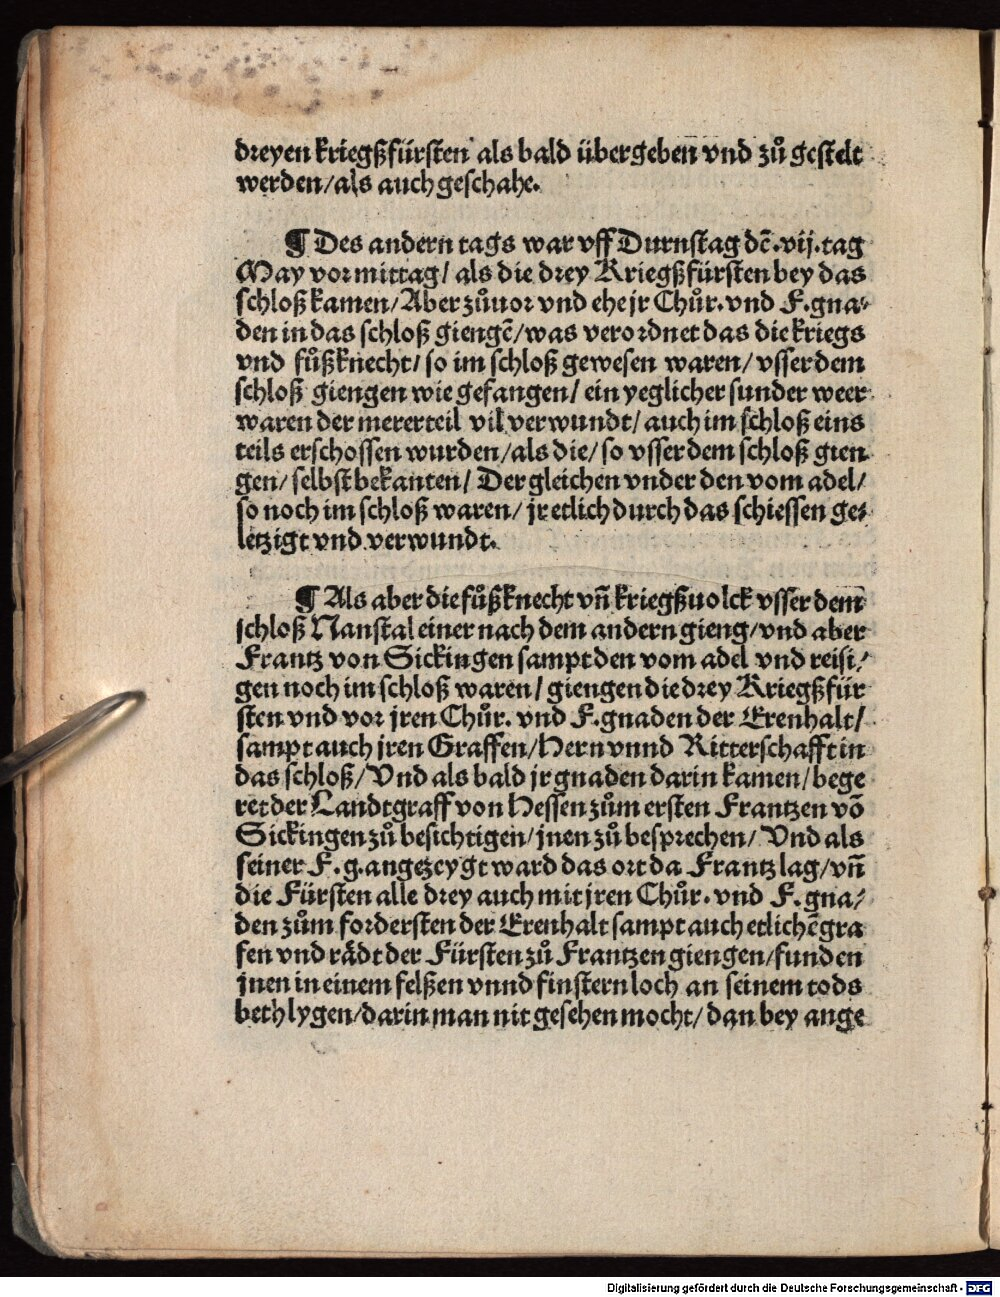 dreyen kriegßfürsten als bald übergeben vnd zů gestelt
werden/als auch geschahe.
¶ Des andern tags war vff Durnstag dē .vij. tag
May vormittag/ als die drey Kriegßfürsten bey das
schloß kamen/Aber zůuor vnd ehe jr Chůr. vnd F. gna⸗
den in das schloß giengē/was verordnet das die kriegs
vnd fůßknecht/ so im schloß gewesen waren/ vsser dem
schloß giengen wie gefangen/ ein yeglicher sunder weer
waren der mererteil vil verwundt/ auch im schloß eins
teils erschossen wurden/als die/ so vsser dem schloß gien
gen/ selbst bekanten/ Der gleichen vnder den vom adel/
so noch im schloß waren/ jr etlich durch das schiessen ge⸗
letzigt vnd verwundt.
¶ Als aber die fůßknecht vñ kriegßuolck vsser dem
schloß Nanstal einer nach dem andern gieng/vnd aber
Frantz von Sickingen sampt den vom adel vnd reisi⸗
gen noch im schloß waren/ giengen die drey Kriegßfür
sten vnd vor jren Chůr. vnd F. gnaden der Erenhalt/
sampt auch jren Graffen/Hern vnnd Ritterschafft in
das schloß/Vnd als bald jr gnaden darin kamen/bege
ret der Landtgraff von Hessen zům ersten Frantzen vō
Sickingen zů besichtigen/jnen zů besprechen/ Vnd als
seiner F. g. angezeygt ward das ort da Frantz lag/vñ
die Fürsten alle drey auch mit jren Chůr. vnd F. gna⸗
den zům fordersten der Erenhalt sampt auch etlichē gra
fen vnd rädt der Fürsten zů Frantzen giengen/funden
jnen in einem felßen vnnd finstern loch an seinem tods
beth lygen/darin man nit gesehen mocht/ dan bey ange
Digitalisierung gefördert durch die Deutsche Forschungsgemeinschaft - DFG